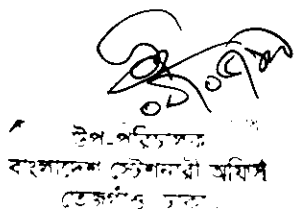 উপ-পরিচালক
বাংলাদেশ স্টেশনারী অফিস
তেজগাঁও, ঢাকা